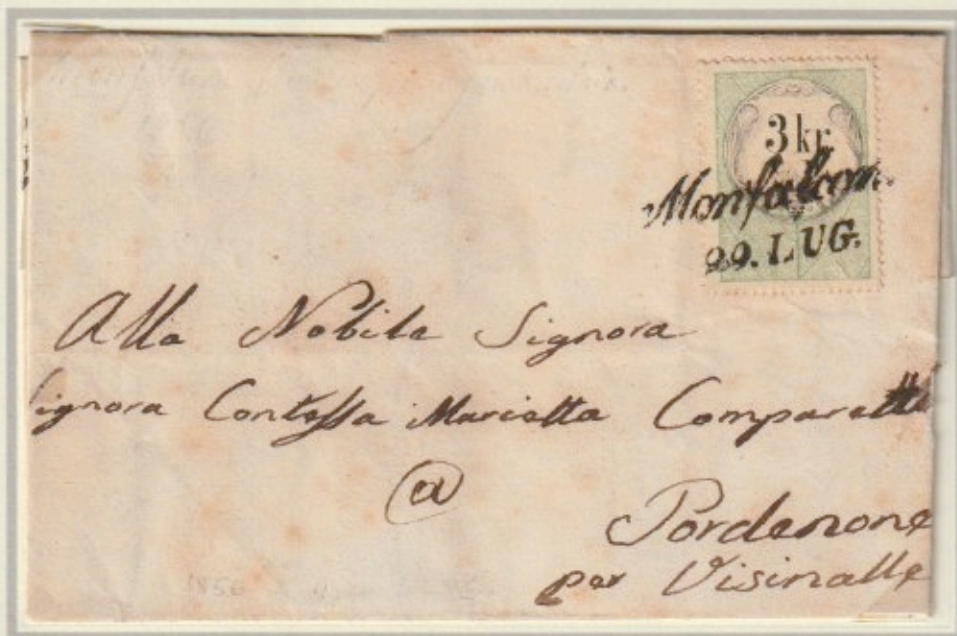 3 kr
Monfalcon.
29. LUG.
Alla Nobile Signora
Signora Contessa Marietta Comparetti
@
Pordenone
per Visinalle
1856